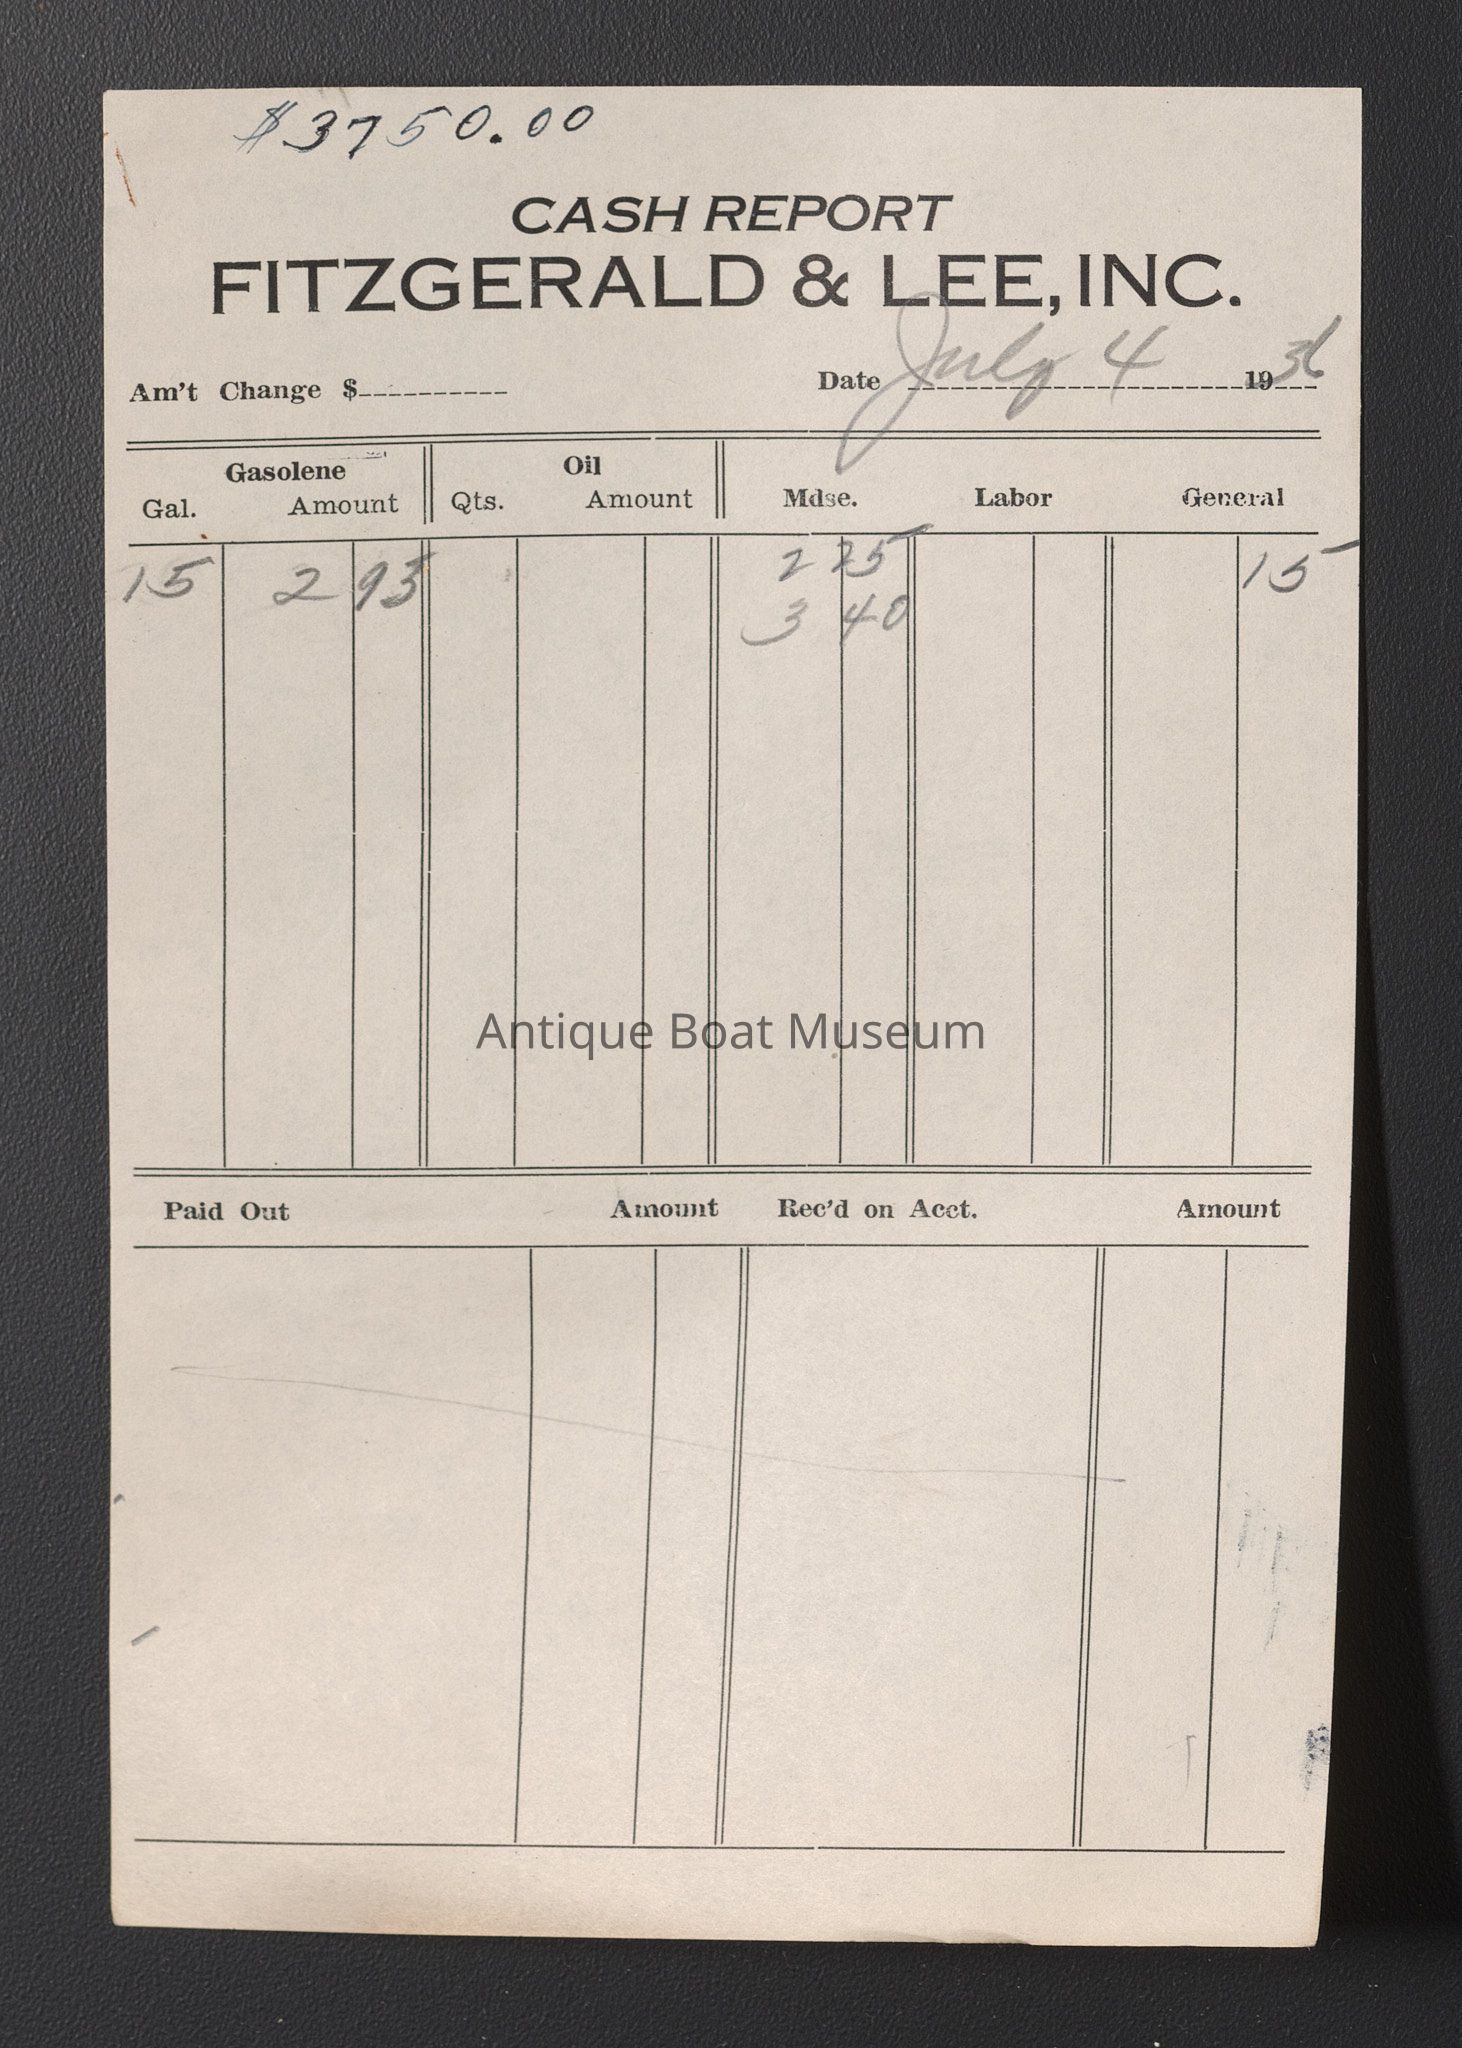 $3750.00
CASH REPORT
FITZGERALD & LEE, INC.
Am't Change $ Date July 4 1936
Gasolene Oil
Gal. Amount Qts. Amount Mdse. Labor General
15 2 93 2 25 15
3 40
Antique Boat Museum
Paid Out Amount Rec'd on Acct. Amount